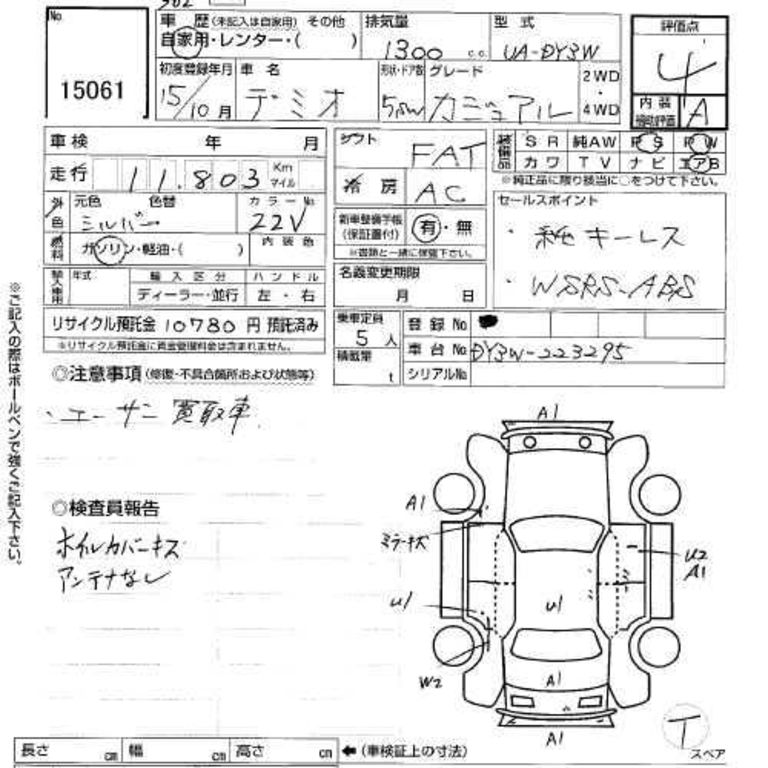 No
15061
車 歴 (未記入は自家用) その他
自家用・レンター・( )
排気量
1300 c.c.
型 式
UA-DY3W
評価点
4
初度登録年月
15/10月
車 名
デミオ
形状・ドア数
5DW
グレード
カジュアル
2WD
・
4WD
内 装
補助評価
A
車検 年 月
走行 11.803 Km
マイル
シフト
FAT
冷 房
AC
装備品
SR 純AW PS PW
カワ TV ナビ エアB
※純正品に限り該当に○をつけて下さい。
外色
元色 色替
シルバー
カラーNo
22V
燃料
ガソリン・軽油・( )
内 装 色
新車整備手帳
(保証書付)
有・無
※書類と一緒に保管下さい。
セールスポイント
・純正キーレス
・WSRS-ABS
輸入車用
年式
輸 入 区 分
ディーラー・並行
ハ ン ド ル
左・右
名義変更期限
月 日
リサイクル預託金 10780 円 預託済み
※リサイクル預託金に資金管理料金は含まれません。
乗車定員
5 人
積載量
t
登 録 No
車 台 No DY3W-223295
シリアルNo
◎注意事項 (修復・不具合箇所および状態等)
・ユーザー買取車
◎検査員報告
ホイルカバーキズ
アンテナなし
※ご記入の際はボールペンで強くご記入下さい。
A1
A1
ミラーキズ
U2
A1
U1
U1
W2
A1
A1
T
スペア
長さ cm 幅 cm 高さ cm ←(車検証上の寸法)